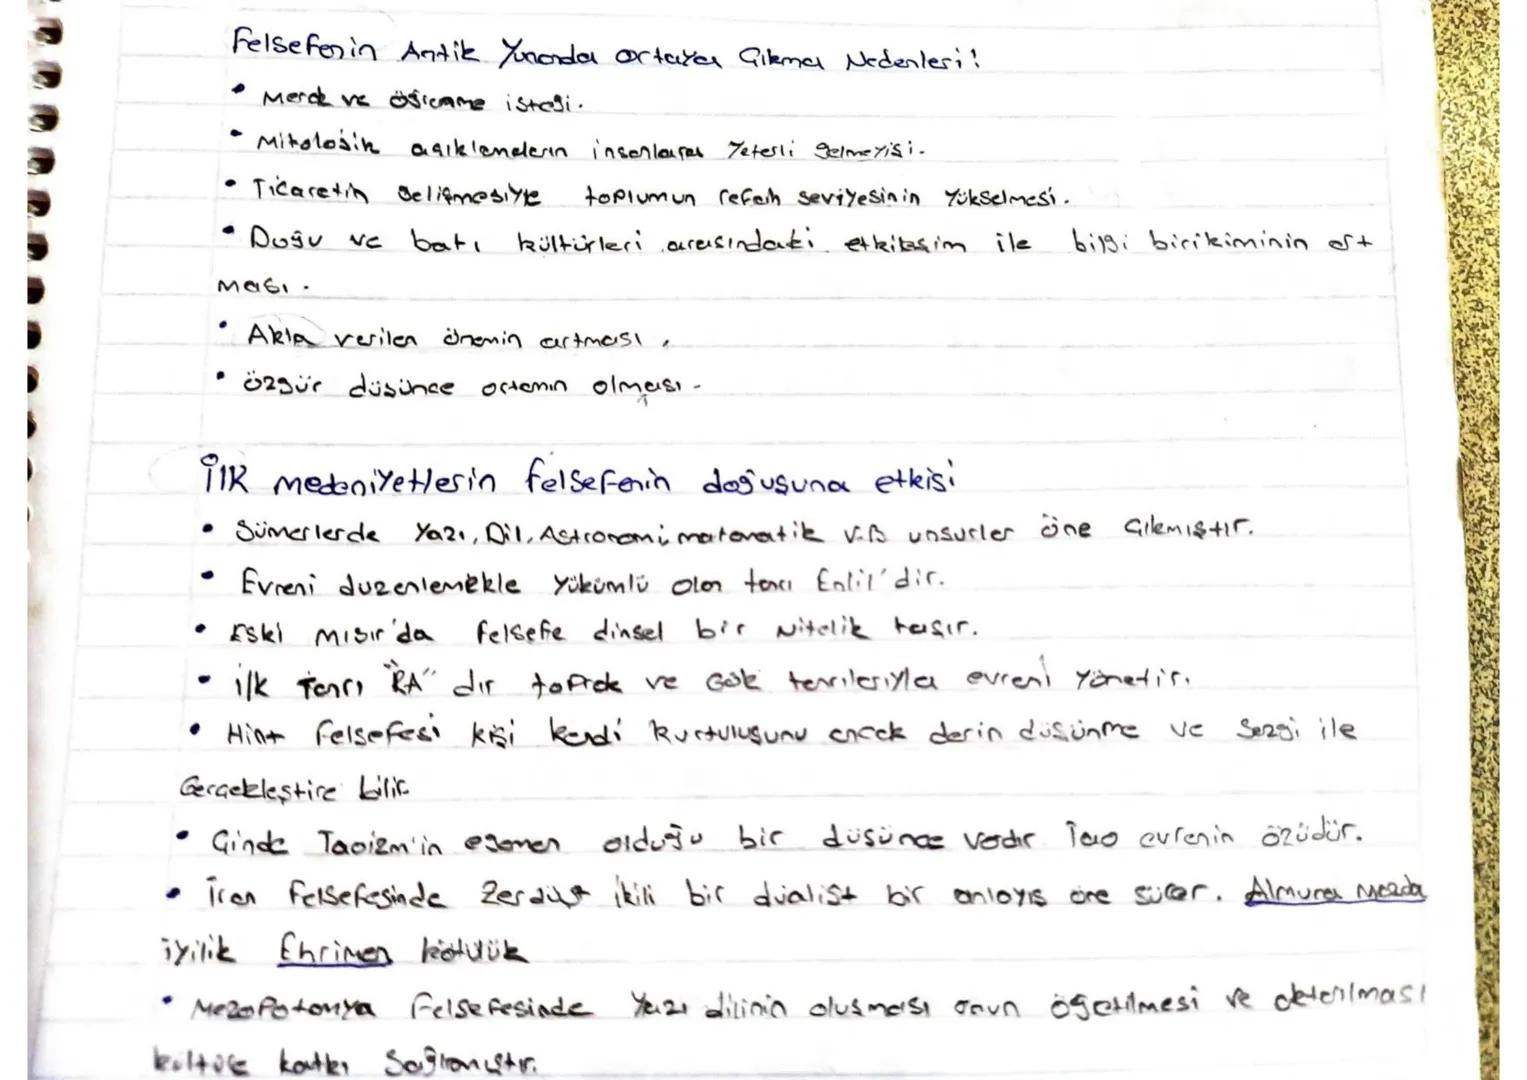 Felsefenin Antik Yunanda ortaya Çıkma Nedenleri!
• Merak ve öğrenme isteği.
• Mitolojik açıklamaların insanlara Yeterli gelmeyişi.
• Ticaretin gelişmesiyle toplumun refah seviyesinin Yükselmesi.
• Doğu ve batı kültürleri arasındaki etkileşim ile bilgi birikiminin art
ması.
• Akla verilen önemin artması.
• özgür düşünce ortamın olması.
İlk medeniyetlerin felsefenin doğuşuna etkisi
• Sümerlerde Yazı, Dil, Astronomi, matematik v.B unsurlar öne Çıkmıştır.
• Evreni duzenlemekle Yükümlü olan tanrı Enlil'dir.
• Eski mısır'da felsefe dinsel bir Nitelik taşır.
• ilk Tanrı "RA" dır toprak ve Gök tanrılarıyla evreni Yönetir.
• Hint felsefesi kişi kendi kurtuluşunu ancak derin düşünme ve Sezgi ile
Gerçekleştire bilir
• Çinde Taoizm'in egemen olduğu bir düşünce vardır Tao evrenin özüdür.
• İran felsefesinde Zerdüşt ikili bir dualist bir anlayış öne sürer. Almura Mazda
iyilik Ehrimen kötülük
• Mezopotamya felsefesinde Yazı dilinin oluşması onun öğretilmesi ve aktarılması
kültüre katkı Sağlamıştır.